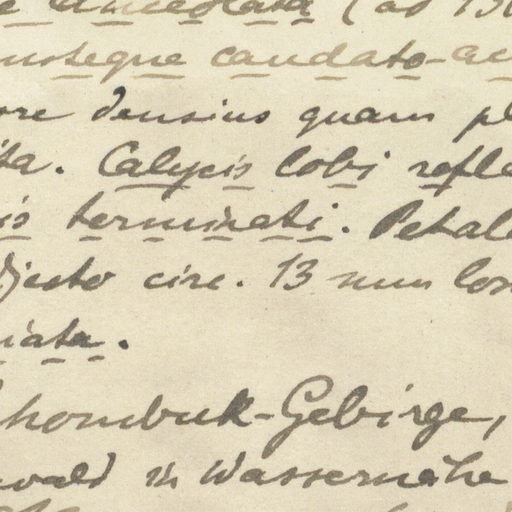 lanceolata (ad 13
usteque caudato-ac
ore densius quam pl
ita. Calycis lobi refle
is terminati. Petal
djecto circ. 13 mm lon
iata.
hombuk-Gebirge,
wald in Wassernähe